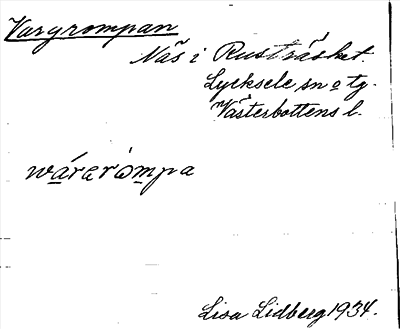 Vargrompan
Näs i Rusträsket.
Lycksele sn o tg.
Västerbottens l.
wárɐròmpa
Lisa Lidberg 1934.